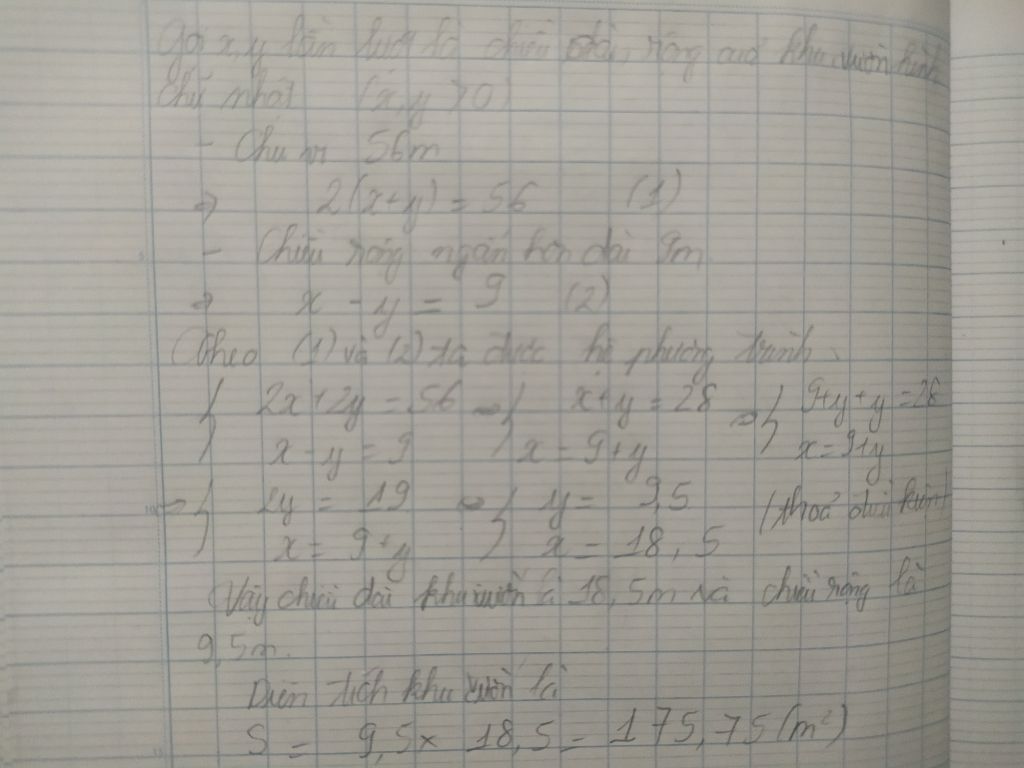 Gọi x, y lần lượt là chiều dài, rộng của khu vườn hình
chữ nhật (x, y > 0)
- Chu vi 56m
=> 2(x+y) = 56 (1)
- Chiều rộng ngắn hơn dài 9m
=> x - y = 9 (2)
Theo (1) và (2) ta được hệ phương trình
{ 2x + 2y = 56 => { x + y = 28 => { 9+y+y = 28
{ x - y = 9 { x = 9+y { x = 9+y
=> { 2y = 19 => { y = 9,5 (thoả điều kiện)
{ x = 9+y { x = 18,5
Vậy chiều dài khu vườn là 18,5m và chiều rộng là
9,5m.
Diện tích khu vườn là
S = 9,5 × 18,5 = 175,75 (m²)